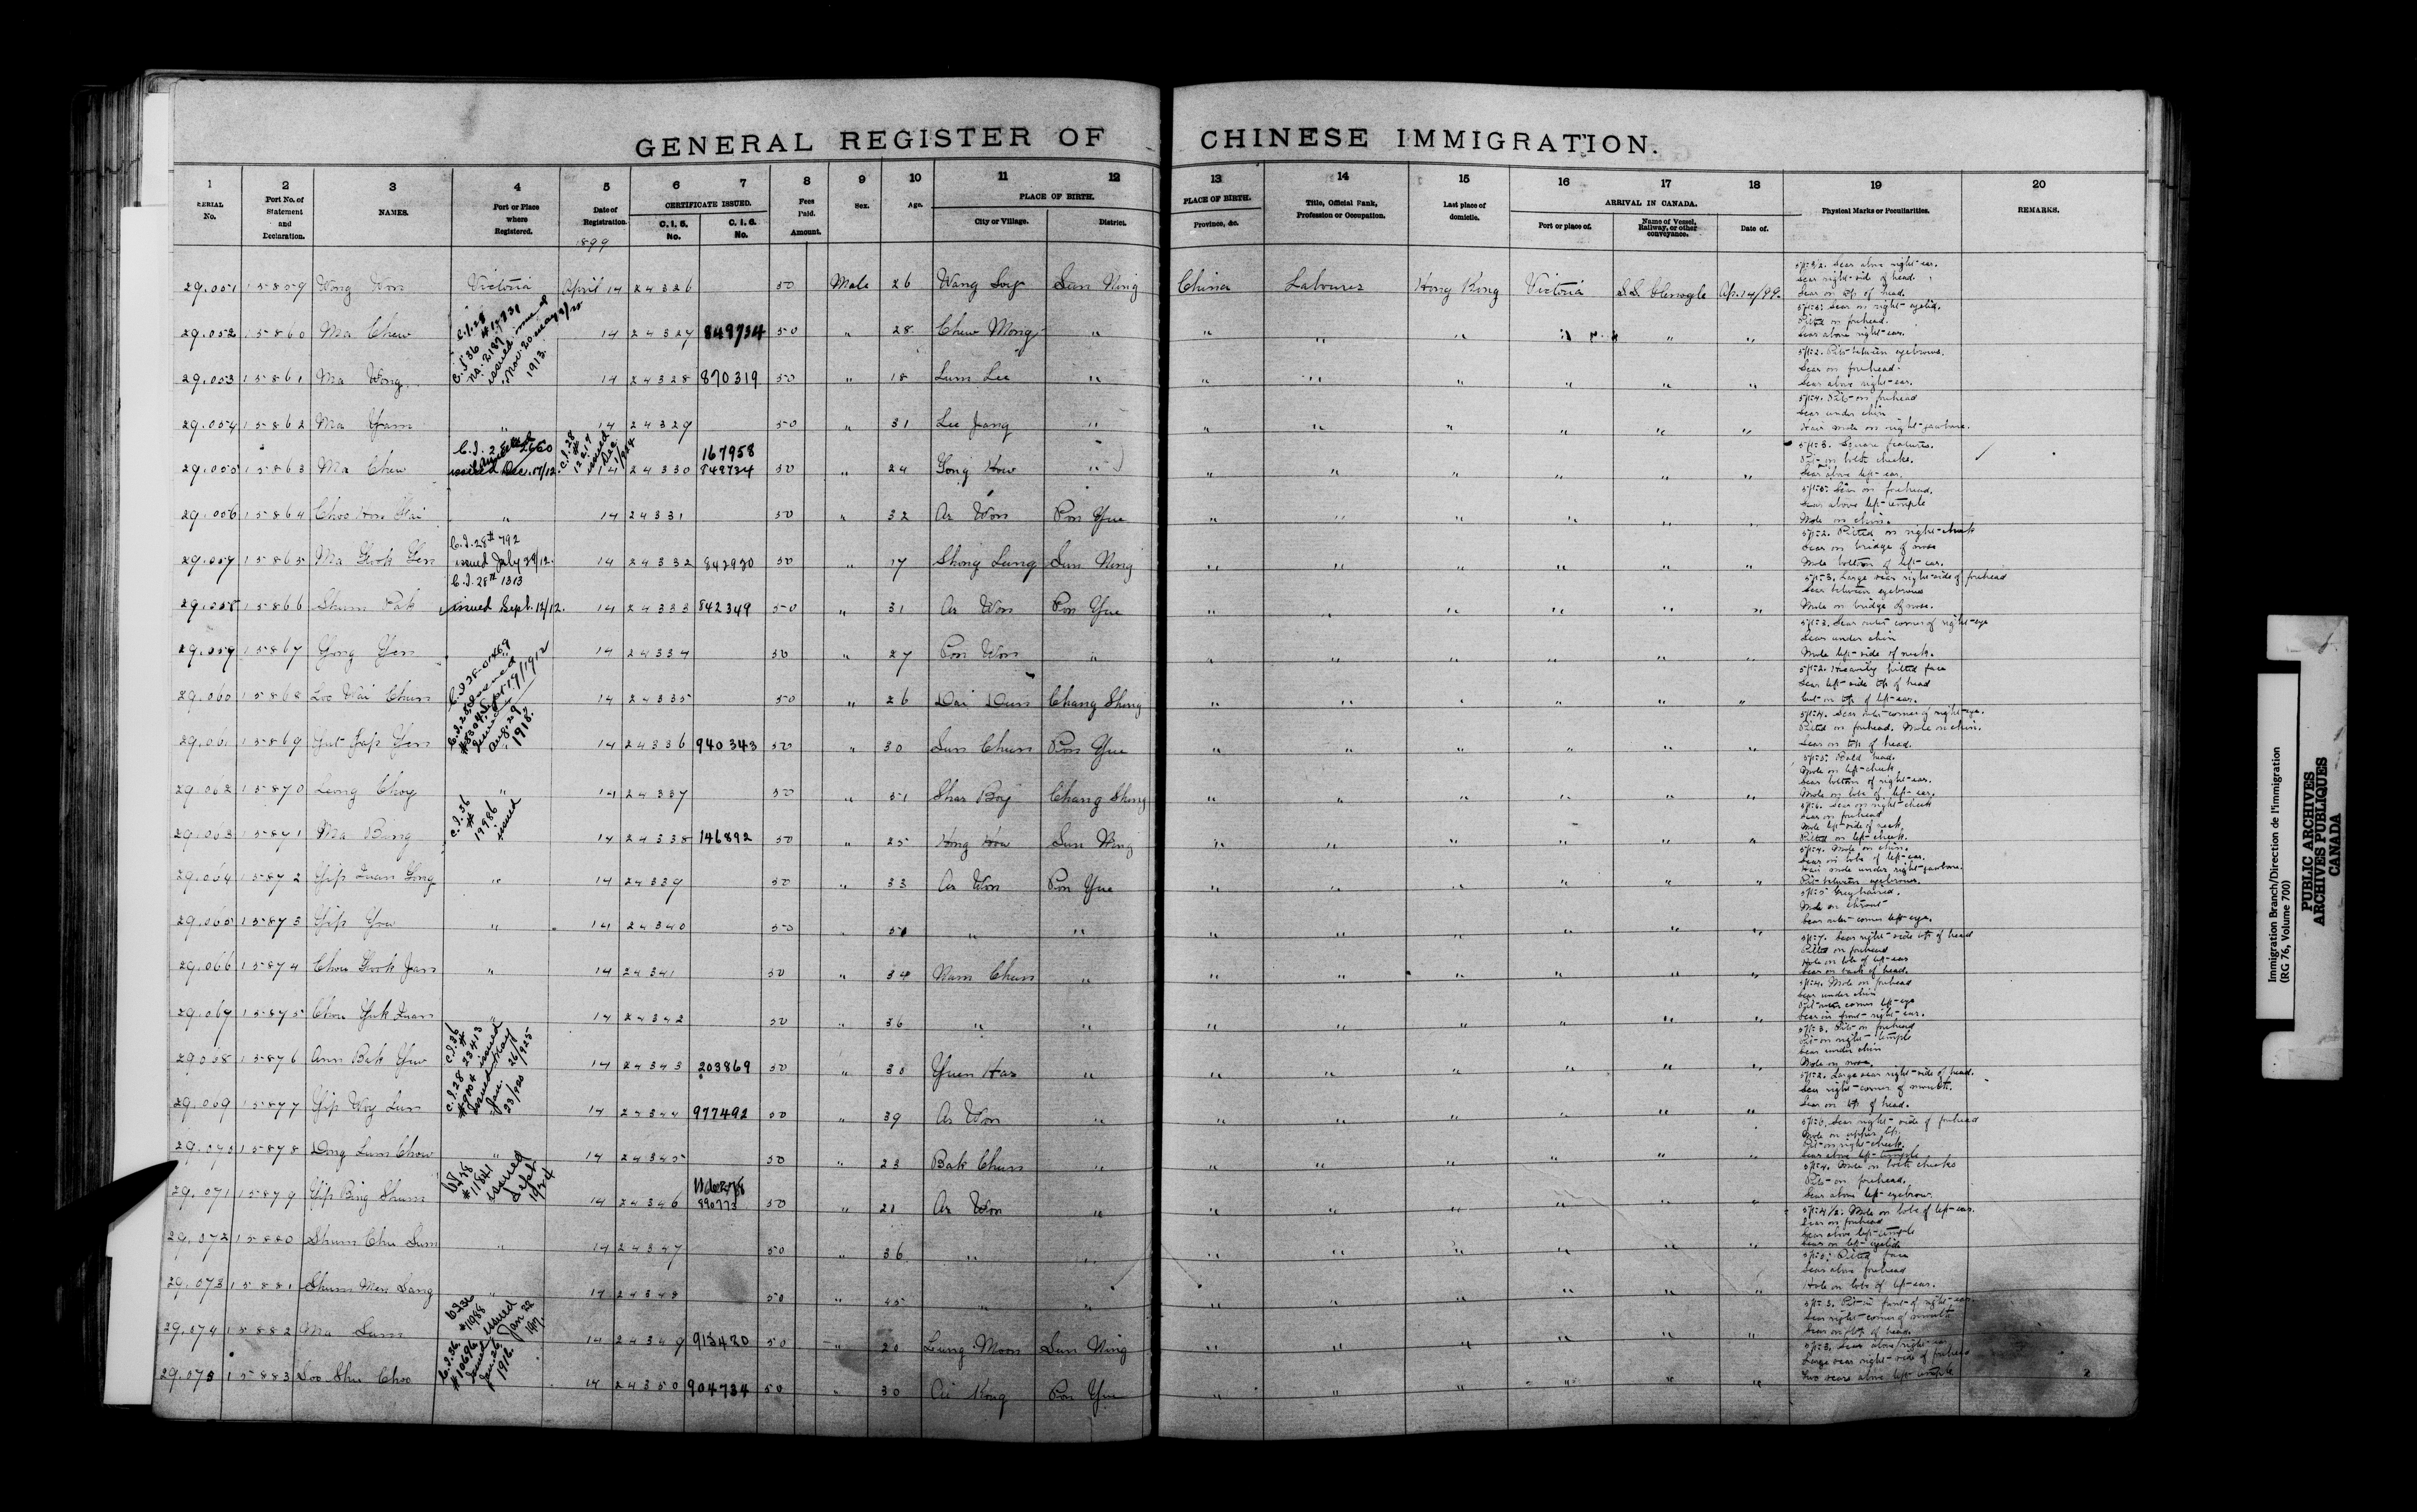 GENERAL REGISTER OF CHINESE IMMIGRATION.
1 2 3 4 5 6 7 8 9 10 11 12 13 14 15 16 17 18 19 20
SERIAL No. Port No. of Statement and Declaration. NAMES. Port or Place where Registered. Date of Registration. CERTIFICATE ISSUED. C. I. 5. No. C. I. 6. No. Fees Paid. Amount. Sex. Age. PLACE OF BIRTH. City or Village. District. PLACE OF BIRTH. Province, &c. Title, Official Rank, Profession or Occupation. Last place of domicile. ARRIVAL IN CANADA. Port or place of. Name of Vessel, Railway, or other conveyance. Date of. Physical Marks or Peculiarities. REMARKS.
1899
29.051 15859 Wong Won Victoria April 14 24326 50 Male 26 Wang Soy Sun Ning China Labourer Hong Kong Victoria S.S. Glenogle Ap. 14/99. Scar above right ear. Scar right side of head. Scar on top of head.
29.052 15860 Ma Chew 14 24327 849734 50 " 28 Chew Mong " " " " " " Scar on right eyelid. Pitted on forehead. Scar above right ear.
29.053 15861 Ma Wong 14 24328 870319 50 " 18 Lum Lee " " " " " " " 5ft 2. Pit between eyebrows. Scar on forehead. Scar above right ear.
29.054 15862 Ma Yam " 14 24329 50 " 31 Lee Jang " " " " " " " 5ft 4. Pits on forehead Scar under chin Hair mole on right jawbone.
29.055 15863 Ma Chew issued Dec. 17/12. 14 24330 167958 849734 50 " 24 Gong How " " " " " " " 5ft 3. Square features. Pits on both cheeks. Scar above left ear.
29.056 15864 Choo Hon Kai " 14 24331 50 " 32 Ar Won Pon Yue " " " " " " Scar on forehead. Scar above left temple Mole on chin.
29.057 15865 Ma Gook Yen C.I.28 # 792 issued July 29/12. 14 24332 842920 50 " 17 Shong Lung Sun Ning " " " " " " 5ft 2. Pitted on right cheek Scar on bridge of nose Mole bottom of left ear.
29.058 15866 Shum Pak C.I.28 # 1313 issued Sept. 12/12. 14 24333 842349 50 " 31 Ar Won Pon Yue " " " " " " 5ft 3. Large scar right side of forehead Scar between eyebrows Mole on bridge of nose.
29.059 15867 Yong Yen 14 24334 50 " 27 Pon Won " " " " " " " 5ft 3. Scar outer corner of right eye Scar under chin Mole left side of neck.
29.060 15868 Loo Wai Chun 14 24335 50 " 26 Dai Dun Chang Shing " " " " " " 5ft 2. Heavily pitted face Scar left side top of head Cut on top of left ear.
29.061 15869 Yut Yap Yen " 14 24336 940343 50 " 30 Sun Chun Pon Yue " " " " " " 5ft 4. Scar outer corner of right eye. Pitted on forehead. Mole on chin. Scar on top of head.
29.062 15870 Leong Choy " 14 24337 50 " 51 Shar Boy Chang Shing " " " " " " Bald head. Mole on left cheek Scar bottom of right ear. Mole on lobe of left ear.
29.063 15871 Ma Bing C.I.36 # 19986 issued 14 24338 146892 50 " 25 Hong How Sun Ning " " " " " " 5ft 6. Scar on right cheek Scar on forehead Mole left side of neck Pitted on left cheek.
29.064 15872 Yip Quan Gong " 14 24339 50 " 33 Ar Won Pon Yue " " " " " " 5ft 4. Mole on chin. Scar on lobe of left ear. Hair mole under right jawbone. Pit between eyebrows.
29.065 15873 Yip You " 14 24340 50 " " " " " " " " " Grey haired. Mole on throat Scar outer corner left eye.
29.066 15874 Chou Gook Jan " 14 24341 50 " 34 Nam Chun " " " " " " " 5ft 7. Scar right side top of head Pitted on forehead Hole on lobe of left ear Scar on back of head.
29.067 15875 Chou Yuk Quan " 14 24342 50 " 36 " " " " " " " " 5ft 4. Mole on forehead Scar under chin Pit outer corner left eye Scar in front right ear.
29.068 15876 Ann Bak Yew C.I.36 # 23413 issued May 26/1925 14 24343 203869 50 " 30 Yuen Har " " " " " " " 5ft 3. Pits on forehead Pit on right temple Scar under chin Mole on nose.
29.069 15877 Yip Woy Lun issued Jan. 23/1920 14 24344 977492 50 " 39 Ar Won " " " " " " " 5ft 2. Large scar right side of head. Scar right corner of mouth. Scar on top of head.
29.070 15878 Dong Lum Chow " 14 24345 50 " 23 Bak Chun " " " " " " " Scar right side of forehead Mole on upper lip. Pit on right cheek. Scar above left temple
29.071 15879 Yip Bing Shum # 11841 issued 1924 14 24346 890773 50 " 21 Ar Won " " " " " " " 5ft 4. Mole on both cheeks Pits on forehead. Scar above left eyebrow.
29.072 15880 Shum Chu Sum " 14 24347 50 " 36 " " " " " " " " 5ft 4 1/2. Mole on lobe of left ear. Scar on forehead Scar above left temple Scar on left eyelid
29.073 15881 Shum Men Sang " 14 24348 50 " 45 " " " " " " " " Pitted face Scar above forehead Hole on lobe of left ear.
29.074 15882 Ma Sum # 11988 issued Jan 22 14 24349 913420 50 " 20 Leung Moon Sun Ning " " " " " " 5ft 3. Pit in front of right ear. Scar right corner of mouth Scar on top of head.
29.075 15883 Soo Shu Choo C.I.36. # 10696 issued Jan. 26, 1916. 14 24350 904734 50 " 30 Kong Pon Yue " " " " " " 5ft 3. Scar above right ear Large scar right side of forehead Two scars above left temple
Immigration Branch/Direction de l'immigration
(RG 76, Volume 700)
PUBLIC ARCHIVES
ARCHIVES PUBLIQUES
CANADA